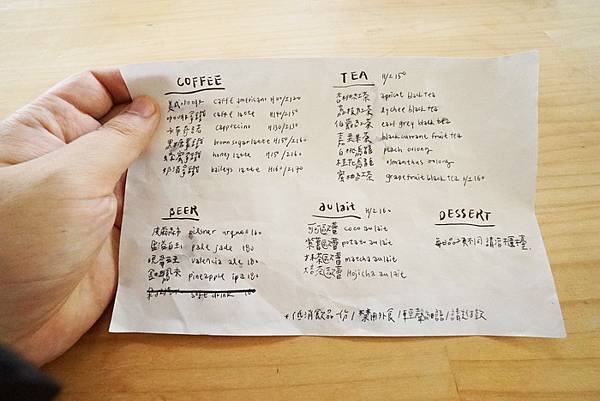 COFFEE
美式咖啡 caffè americano H120/I120
咖啡拿鐵 caffè latte
卡布奇諾 cappuccino H130/I130
黑糖拿鐵 brown sugar latte H150/I160
蜂蜜拿鐵 honey latte H150/I160
奶酒拿鐵 baileys latte H160/I170
TEA H/I 150
杏桃紅茶 apricot black tea
荔枝紅茶 lychee black tea
伯爵紅茶 earl grey black tea
黑嘉麗果茶 black currant fruit tea
白桃烏龍 peach oolong
桂花烏龍 osmanthus oolong
蜜柚紅茶 grapefruit black tea H/I 160
BEER
pilsner urquell 160
pale jade 180
valencia ale 180
pineapple ipa 180
soft drink
au lait H/I 160
可可歐蕾 coco au lait
紫薯歐蕾 potato au lait
抹茶歐蕾 matcha au lait
焙茶歐蕾 Hojicha au lait
DESSERT
每日品項不同 請洽櫃檯
*低消飲品一份/禁用外食/輕聲細語/請付現